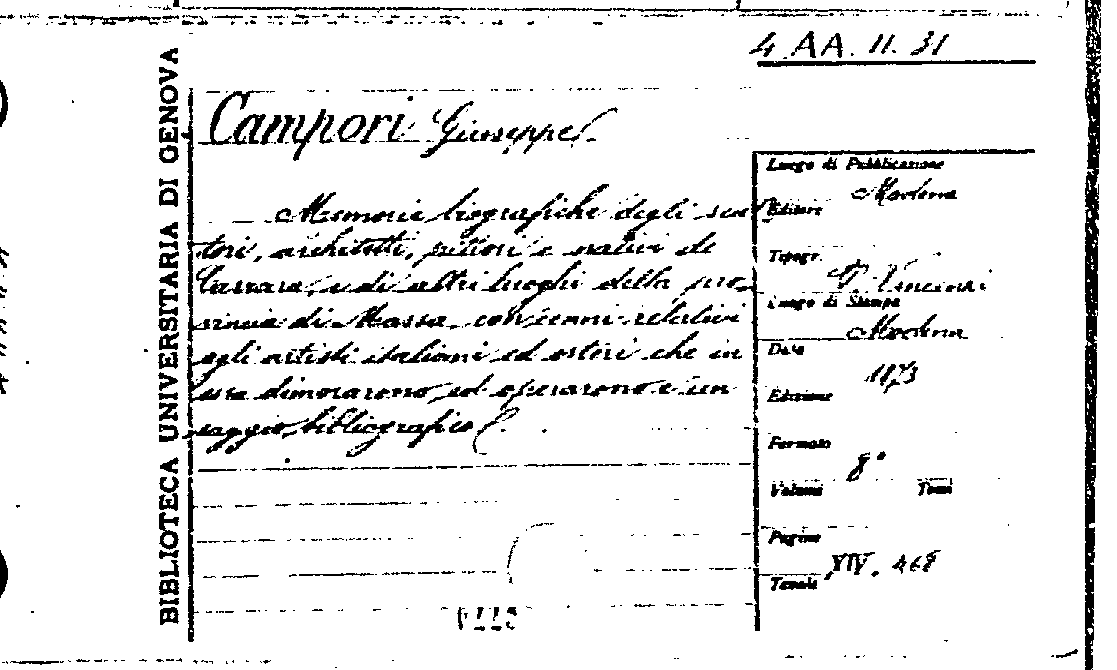 4. AA. II. 31
BIBLIOTECA UNIVERSITARIA DI GENOVA
Campori Giuseppe
Memorie biografiche degli scul-
tori, architetti, pittori e nativi di
Carrara, e di altri luoghi della pro-
vincia di Massa, con cenni relativi
agli artisti italiani ed esteri che in
essa dimorarono ed operarono e un
saggio bibliografico
Luogo di Pubblicazione
Modena
Editore
Tipogr.
Vincenzi
Luogo di Stampa
Modena
Data
1873
Edizione
Formato
8°
Volumi Tomi
Pagine
XIV, 468
Tavole